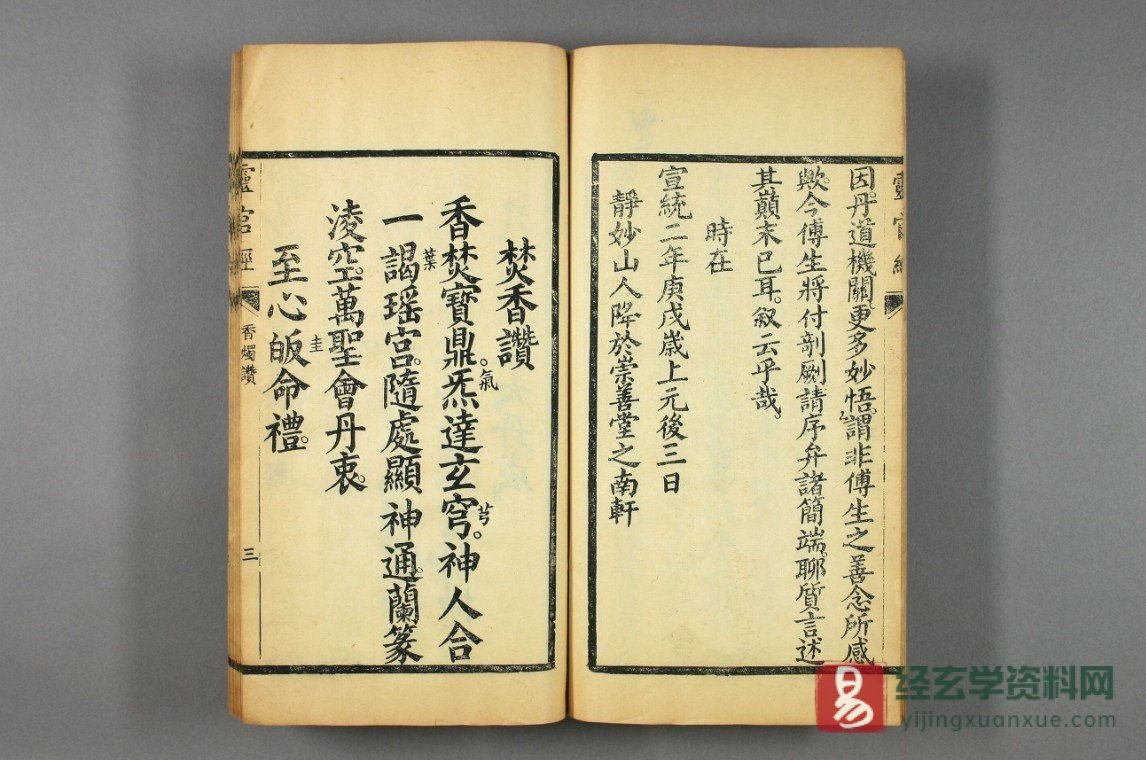 靈官經
因丹道機關。更多妙悟。謂非傅生之善念所感
歟。今傅生將付剞劂請序弁諸簡端。聊質言述
其巔末已耳。叙云乎哉。
時在
宣統二年庚戌歲上元後三日
靜妙山人降於崇善堂之南軒
焚香讚
香焚寶鼎。炁達玄穹。神人合
氣
芎
一謁瑶宮。隨處顯神通。蘭篆
葉
淩空。萬聖會丹衷。
圭
至心皈命禮。
靈官經
香燭讚
三
易
经玄学资料网
yijingxuanxue.com